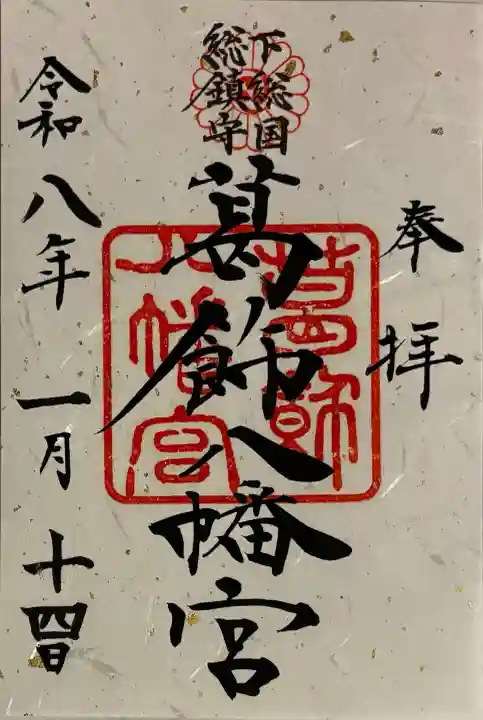 奉拝
下総国
総鎮守
葛飾八幡宮
葛飾
八幡宮
令和八年一月十四日